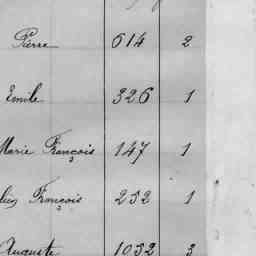 Pierre 614 2
Emile 326 1
Marie François 147 1
François 232 1
Auguste 1032 3